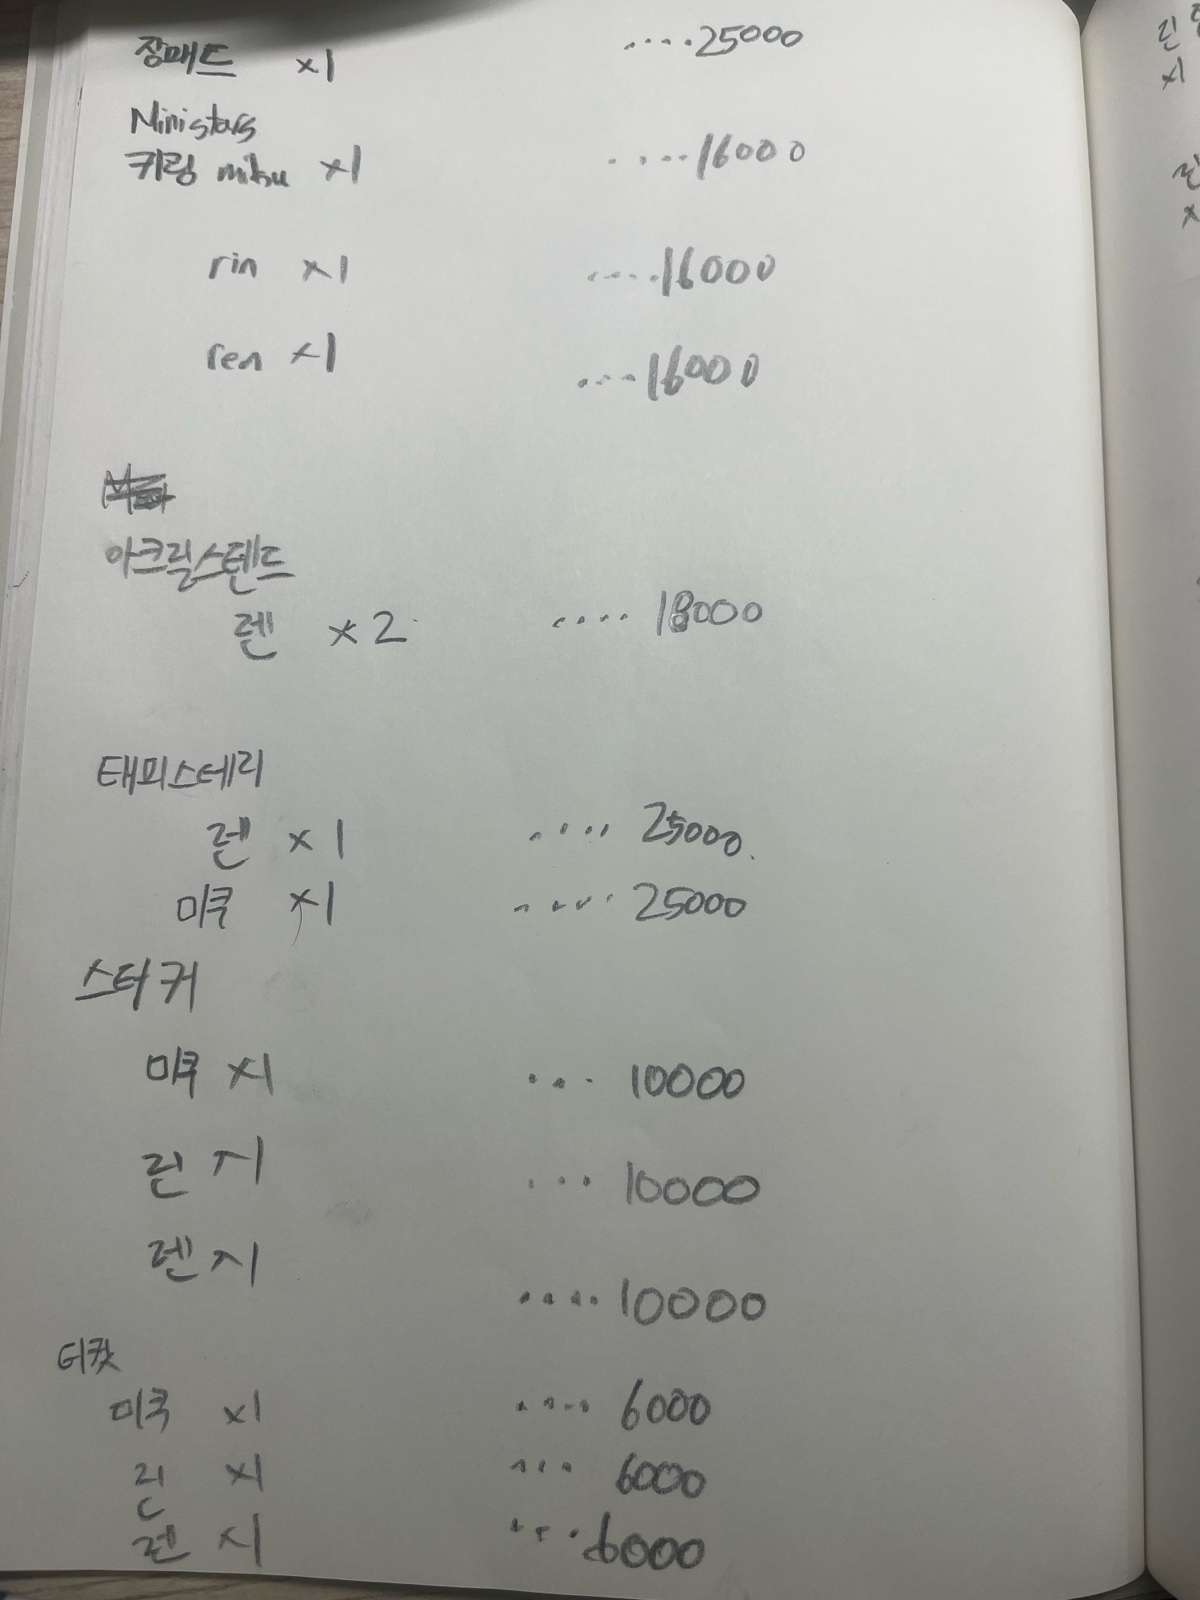 장패드 x1 ....25000
Ministars
키링 miku x1 ....16000
rin x1 ....16000
ren x1 ....16000
아크릴스텐드
렌 x2 ....18000
태피스테리
렌 x1 ....25000
미쿠 x1 ....25000
스티커
미쿠 x1 ...10000
린 x1 ...10000
렌 x1 ....10000
티켓
미쿠 x1 ....6000
린 x1 ...6000
렌 x1 ...6000
린
x1
x